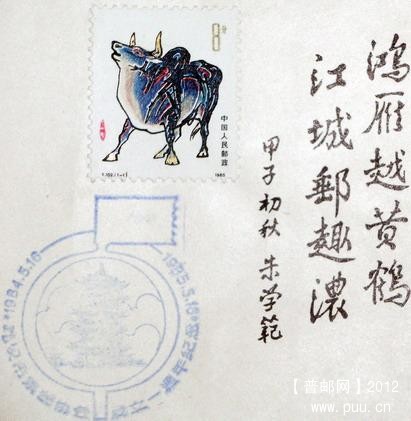 鸿雁越黄鹤
江城郵趣濃
甲子初秋 朱学範
8分
中国人民郵政
T.102.(1-1)
1985
1984.5.16
1985.5.16
【普邮网】2012
www.puu.cn